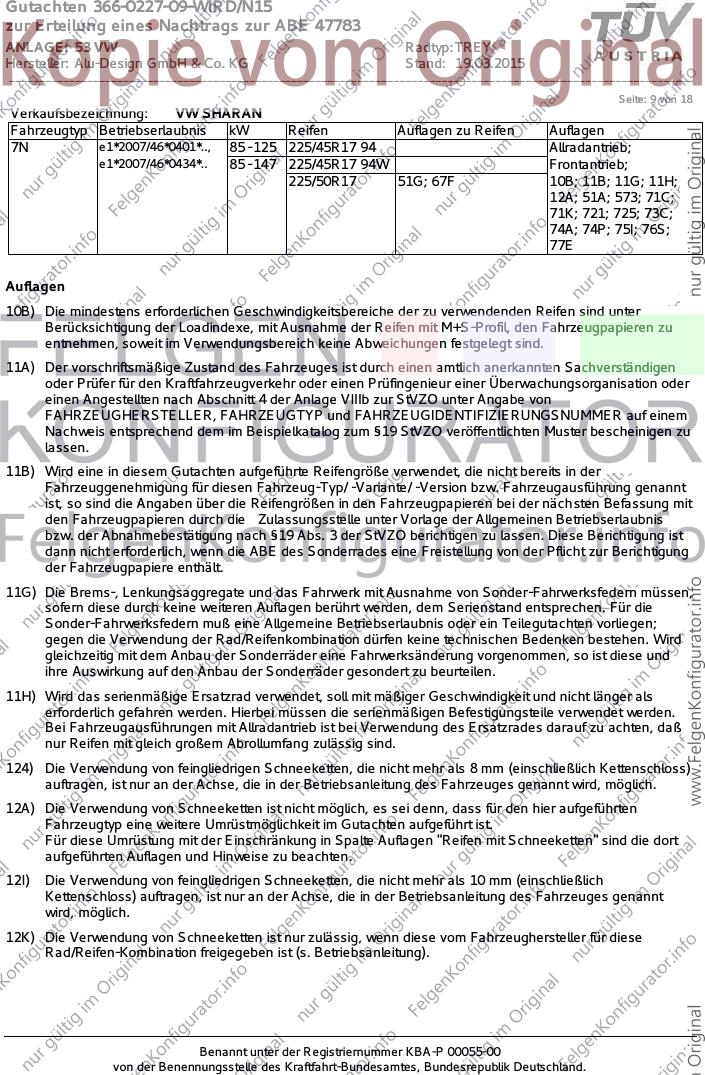 Gutachten 366-0227-09-WIRD/N15
zur Erteilung eines Nachtrags zur ABE 47783
ANLAGE: 53 VW
Radtyp: TREY
Hersteller: Alu-Design GmbH & Co. KG
Stand: 19.03.2015
TÜV
AUSTRIA
Kopie vom Original
Seite: 9 von 18
Verkaufsbezeichnung: VW SHARAN
Fahrzeugtyp Betriebserlaubnis kW Reifen Auflagen zu Reifen Auflagen
7N e1*2007/46*0401*.., 85-125 225/45R17 94 Allradantrieb;
e1*2007/46*0434*.. 85-147 225/45R17 94W Frontantrieb;
225/50R17 51G; 67F 10B; 11B; 11G; 11H;
12A; 51A; 573; 71C;
71K; 721; 725; 73C;
74A; 74P; 75I; 76S;
77E
Auflagen
10B) Die mindestens erforderlichen Geschwindigkeitsbereiche der zu verwendenden Reifen sind unter
Berücksichtigung der Loadindexe, mit Ausnahme der Reifen mit M+S-Profil, den Fahrzeugpapieren zu
entnehmen, soweit im Verwendungsbereich keine Abweichungen festgelegt sind.
11A) Der vorschriftsmäßige Zustand des Fahrzeuges ist durch einen amtlich anerkannten Sachverständigen
oder Prüfer für den Kraftfahrzeugverkehr oder einen Prüfingenieur einer Überwachungsorganisation oder
einen Angestellten nach Abschnitt 4 der Anlage VIIIb zur StVZO unter Angabe von
FAHRZEUGHERSTELLER, FAHRZEUGTYP und FAHRZEUGIDENTIFIZIERUNGSNUMMER auf einem
Nachweis entsprechend dem im Beispielkatalog zum §19 StVZO veröffentlichten Muster bescheinigen zu
lassen.
11B) Wird eine in diesem Gutachten aufgeführte Reifengröße verwendet, die nicht bereits in der
Fahrzeuggenehmigung für diesen Fahrzeug-Typ/ -Variante/ -Version bzw. Fahrzeugausführung genannt
ist, so sind die Angaben über die Reifengrößen in den Fahrzeugpapieren bei der nächsten Befassung mit
den Fahrzeugpapieren durch die Zulassungsstelle unter Vorlage der Allgemeinen Betriebserlaubnis
bzw. der Abnahmebestätigung nach §19 Abs. 3 der StVZO berichtigen zu lassen. Diese Berichtigung ist
dann nicht erforderlich, wenn die ABE des Sonderrades eine Freistellung von der Pflicht zur Berichtigung
der Fahrzeugpapiere enthält.
11G) Die Brems-, Lenkungsaggregate und das Fahrwerk mit Ausnahme von Sonder-Fahrwerksfedern müssen,
sofern diese durch keine weiteren Auflagen berührt werden, dem Serienstand entsprechen. Für die
Sonder-Fahrwerksfedern muß eine Allgemeine Betriebserlaubnis oder ein Teilegutachten vorliegen;
gegen die Verwendung der Rad/Reifenkombination dürfen keine technischen Bedenken bestehen. Wird
gleichzeitig mit dem Anbau der Sonderräder eine Fahrwerksänderung vorgenommen, so ist diese und
ihre Auswirkung auf den Anbau der Sonderräder gesondert zu beurteilen.
11H) Wird das serienmäßige Ersatzrad verwendet, soll mit mäßiger Geschwindigkeit und nicht länger als
erforderlich gefahren werden. Hierbei müssen die serienmäßigen Befestigungsteile verwendet werden.
Bei Fahrzeugausführungen mit Allradantrieb ist bei Verwendung des Ersatzrades darauf zu achten, daß
nur Reifen mit gleich großem Abrollumfang zulässig sind.
124) Die Verwendung von feingliedrigen Schneeketten, die nicht mehr als 8 mm (einschließlich Kettenschloss)
auftragen, ist nur an der Achse, die in der Betriebsanleitung des Fahrzeuges genannt wird, möglich.
12A) Die Verwendung von Schneeketten ist nicht möglich, es sei denn, dass für den hier aufgeführten
Fahrzeugtyp eine weitere Umrüstmöglichkeit im Gutachten aufgeführt ist.
Für diese Umrüstung mit der Einschränkung in Spalte Auflagen "Reifen mit Schneeketten" sind die dort
aufgeführten Auflagen und Hinweise zu beachten.
12I) Die Verwendung von feingliedrigen Schneeketten, die nicht mehr als 10 mm (einschließlich
Kettenschloss) auftragen, ist nur an der Achse, die in der Betriebsanleitung des Fahrzeuges genannt
wird, möglich.
12K) Die Verwendung von Schneeketten ist nur zulässig, wenn diese vom Fahrzeughersteller für diese
Rad/Reifen-Kombination freigegeben ist (s. Betriebsanleitung).
FELGEN
KONFIGURATOR
FelgenKonfigurator.info
nur gültig im Original
www.FelgenKonfigurator.info
Benannt unter der Registriernummer KBA-P 00055-00
von der Benennungsstelle des Kraftfahrt-Bundesamtes, Bundesrepublik Deutschland.